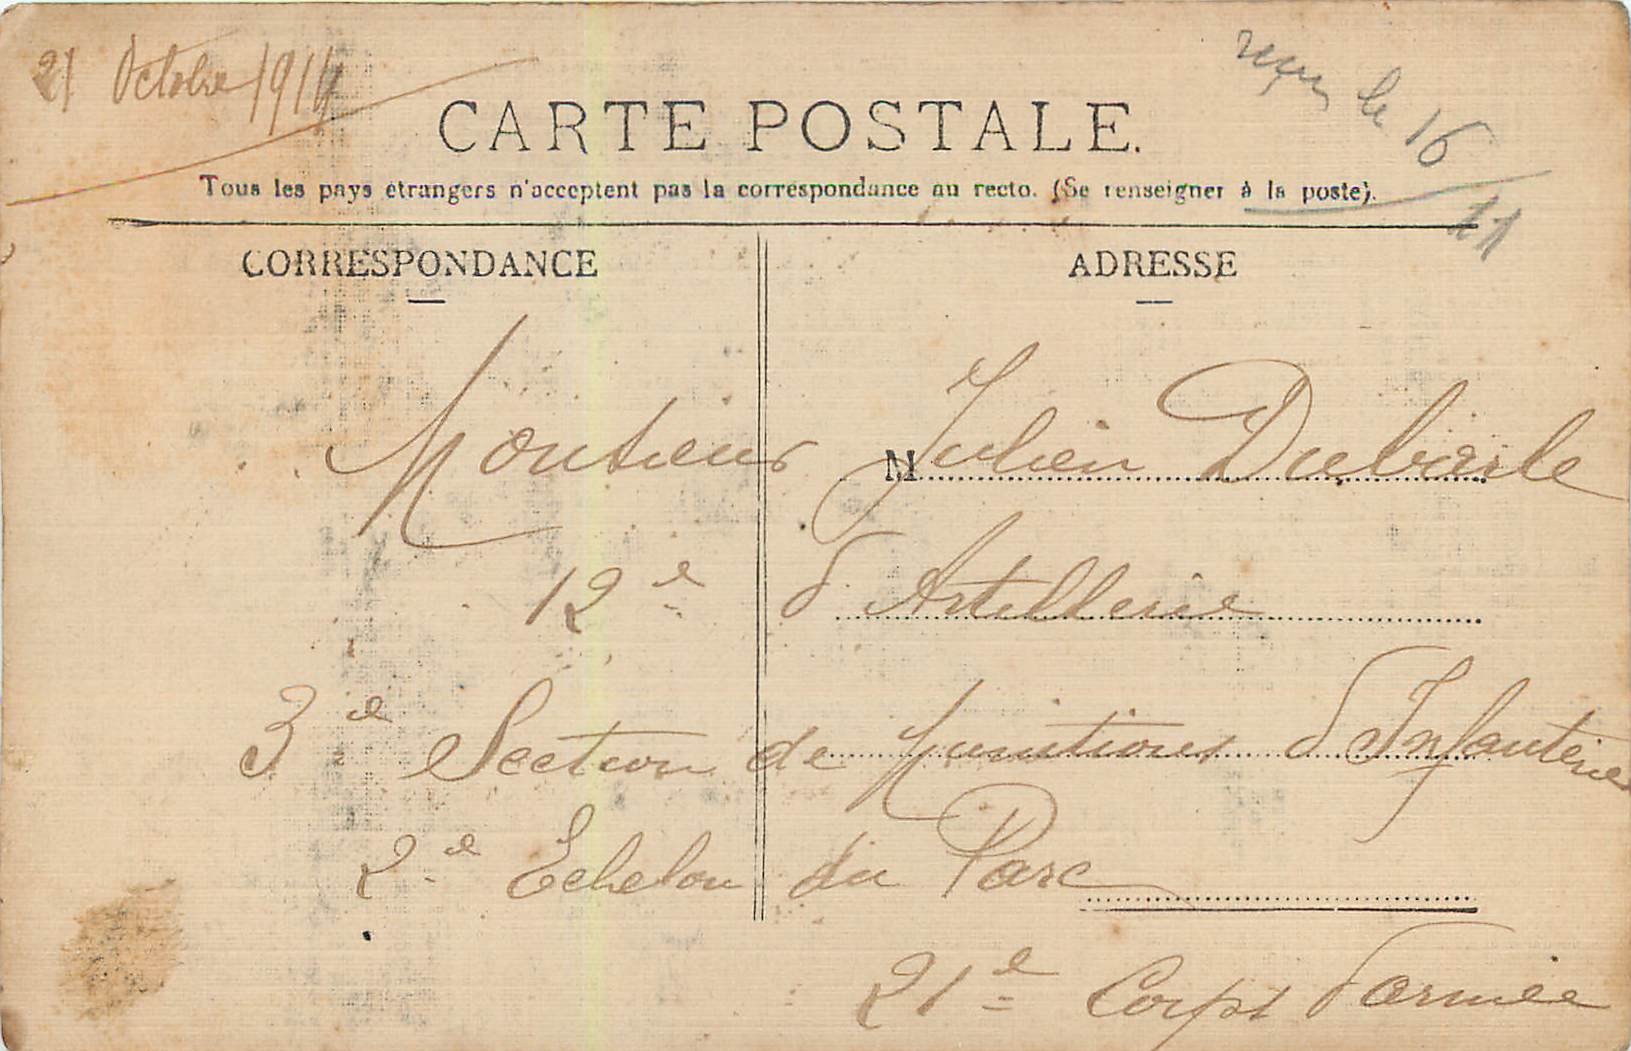 21 Octobre 1914
reçu le 16
11
CARTE POSTALE.
Tous les pays étrangers n'acceptent pas la correspondance au recto. (Se renseigner à la poste).
CORRESPONDANCE
ADRESSE
Monsieur M Julien Dubarle
12e d'Artillerie
3e Section de Munitions d'Infanterie
2e Echelon du Parc
21e Corps d'armée